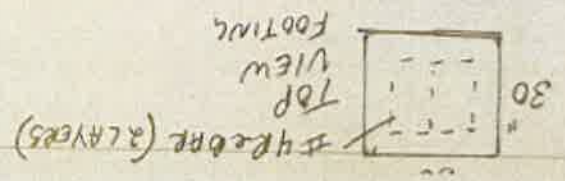 #4 REBAR (2 LAYERS)
TOP
VIEW
FOOTING
30"